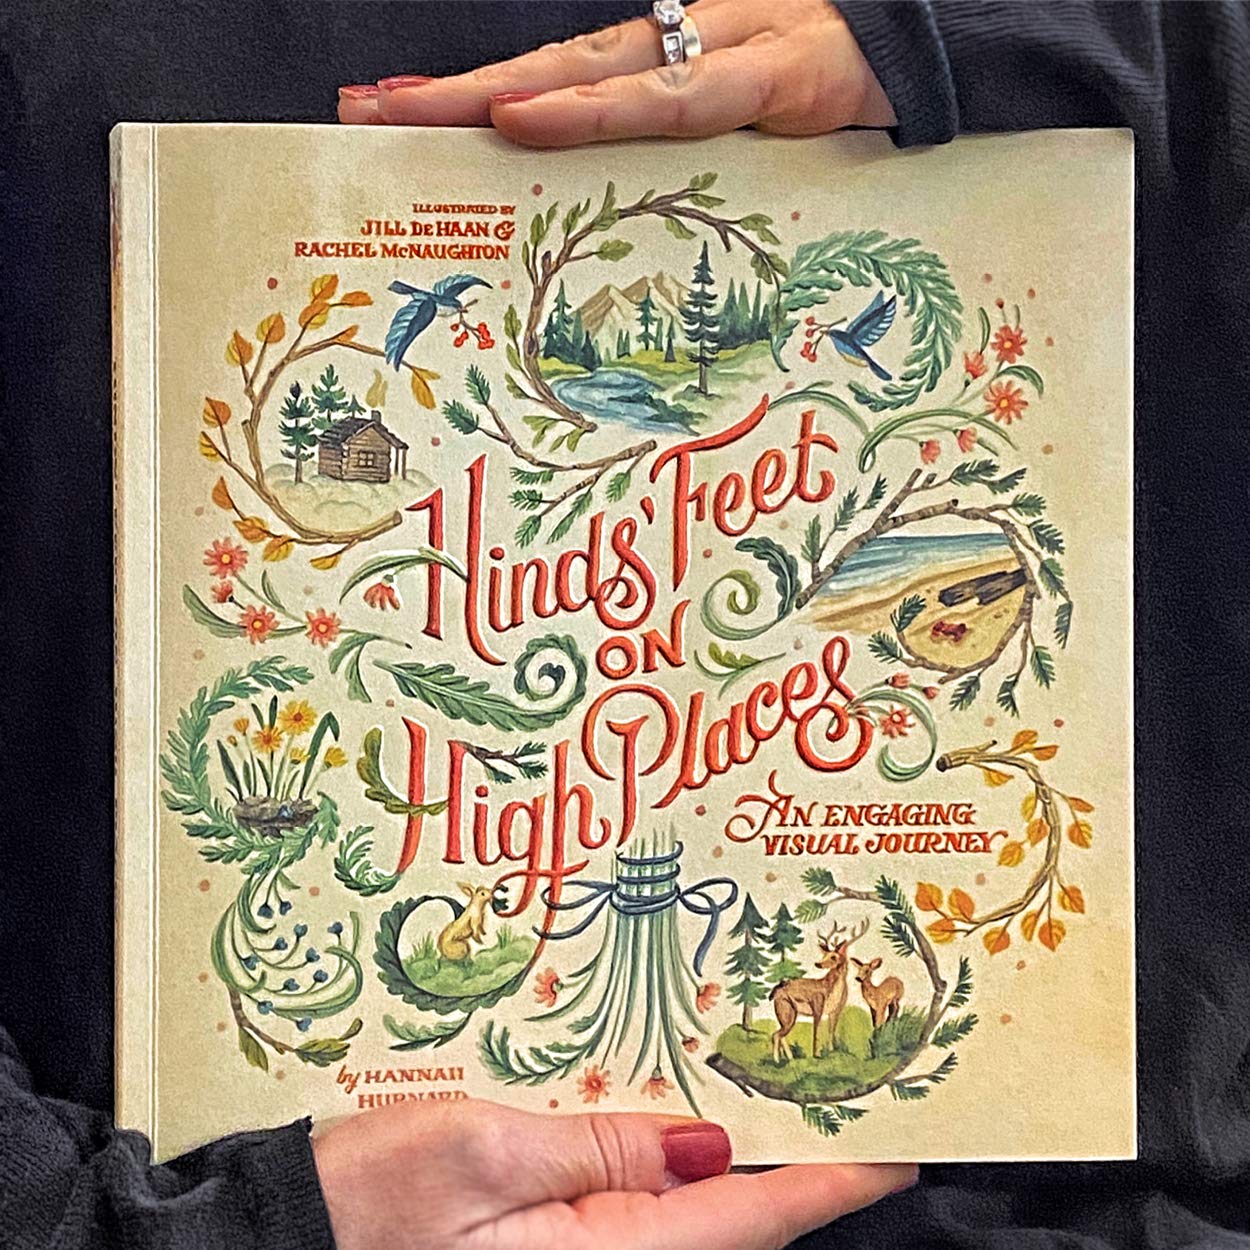 ILLUSTRATED BY
JILL DEHAAN &
RACHEL MCNAUGHTON
Hinds' Feet
ON
High Places
AN ENGAGING
VISUAL JOURNEY
by HANNAH
HURNARD